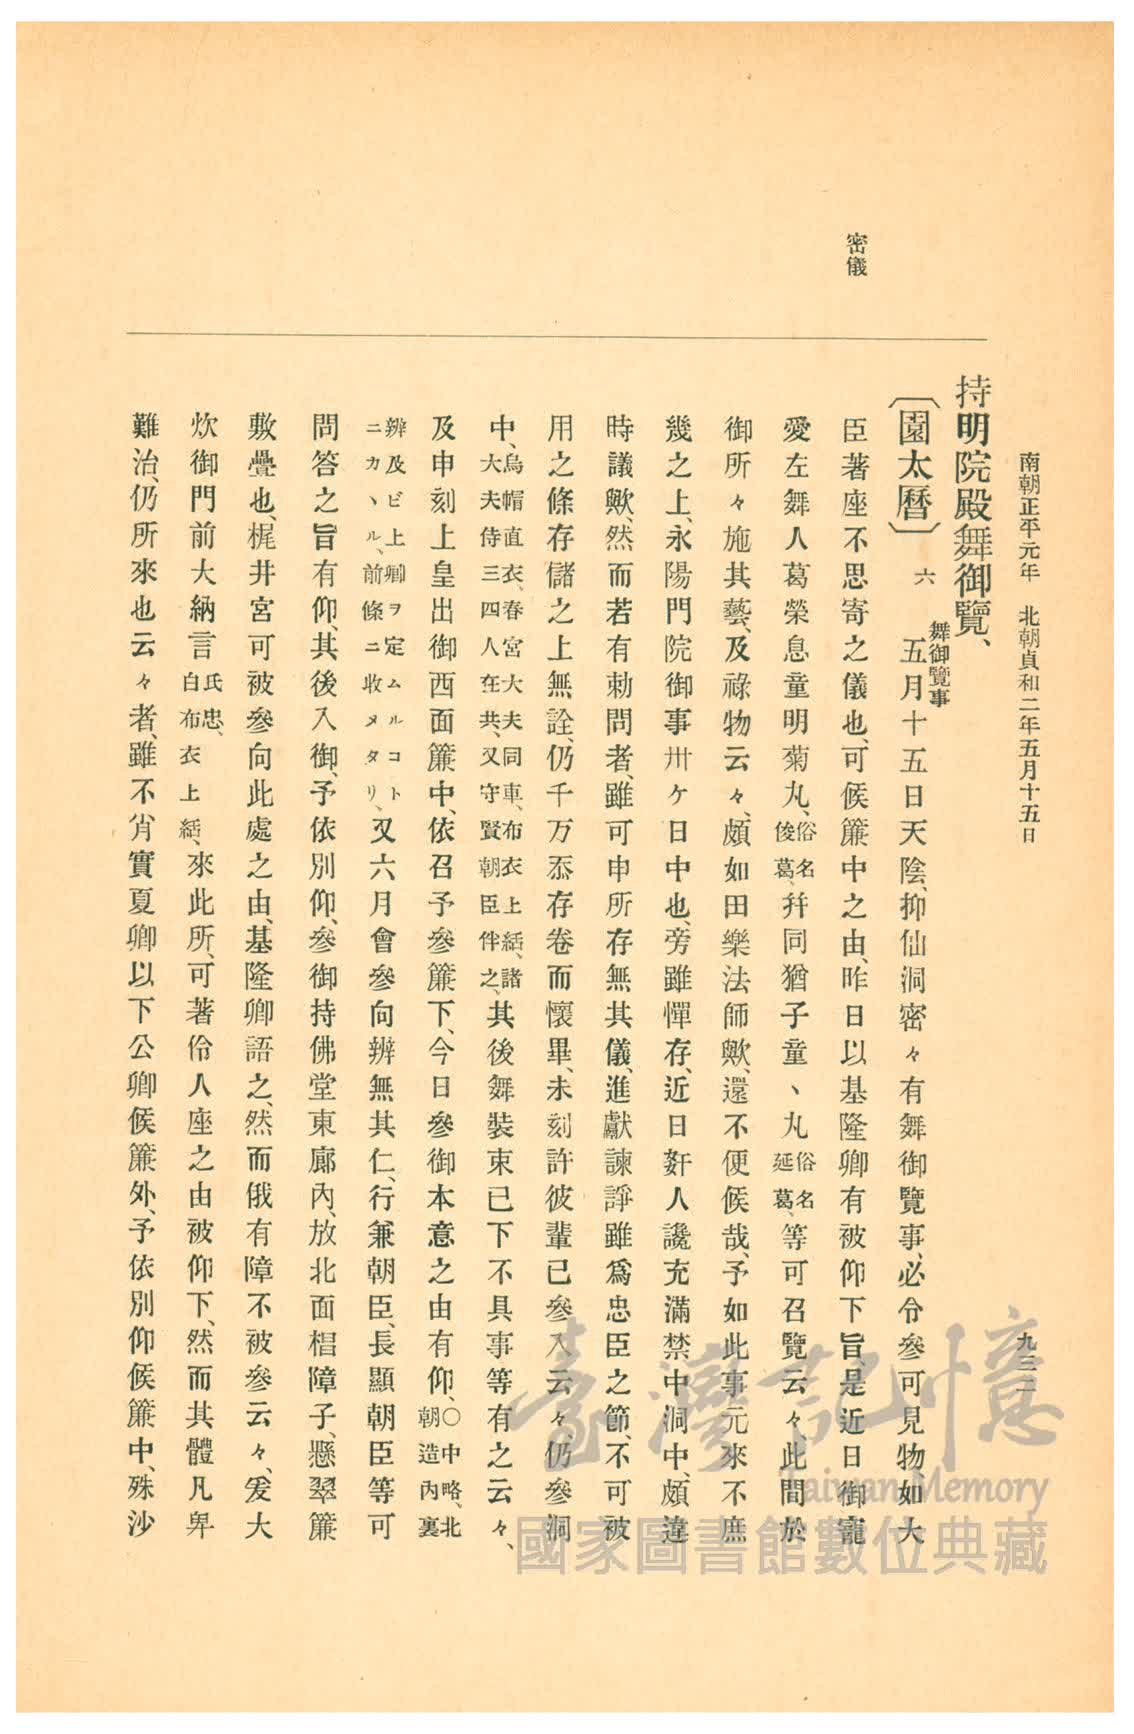 南朝正平元年　北朝貞和二年五月十五日
九三二
持明院殿舞御覽、
〔園太曆〕六
舞御覽事
五月十五日天陰、抑仙洞密々有舞御覽事、必令參可見物、如大
密儀
臣著座不思寄之儀也、可候簾中之由、昨日以基隆卿有被仰下旨、是近日御寵
愛左舞人葛榮息童明菊丸、俗名俊葛、幷同猶子童、丶丸俗名延葛、等可召覽云々、此間於
御所々施其藝、及祿物云々、頗如田樂法師歟、還不便候哉、予如此事元來不庶
幾之上、永陽門院御事卅ケ日中也、旁雖憚存、近日姧人讒充滿禁中洞中、頗違
時議歟、然而若有勅問者、雖可申所存無其儀、進獻諫諍雖爲忠臣之節、不可被
用之條存儲之上無詮、仍千万忝存卷而懷畢、未刻許彼輩已參入云々、仍參洞
中、烏帽直衣、春宮大夫同車、布衣上絬、諸大夫侍三四人在共、又守賢朝臣伴之、其後舞裝束已下不具事等有之云々、
及申刻上皇出御西面簾中、依召予參簾下、今日參御本意之由有仰、〇中略、北朝造內裏
辨及ビ上卿ヲ定ムルコトニカヽル、前條ニ收メタリ、又六月會參向辨無其仁、行兼朝臣、長顯朝臣等可
問答之旨有仰、其後入御、予依別仰、參御持佛堂東廊內、放北面椙障子、懸翠簾
敷疊也、梶井宮可被參向此處之由、基隆卿語之、然而俄有障不被參云々、爰大
炊御門前大納言氏忠、白布衣上絬、來此所、可著伶人座之由被仰下、然而其體凡卑
難治、仍所來也云々者、雖不肖實夏卿以下公卿候簾外、予依別仰候簾中、殊沙
臺灣記憶
Taiwan Memory
國家圖書館數位典藏